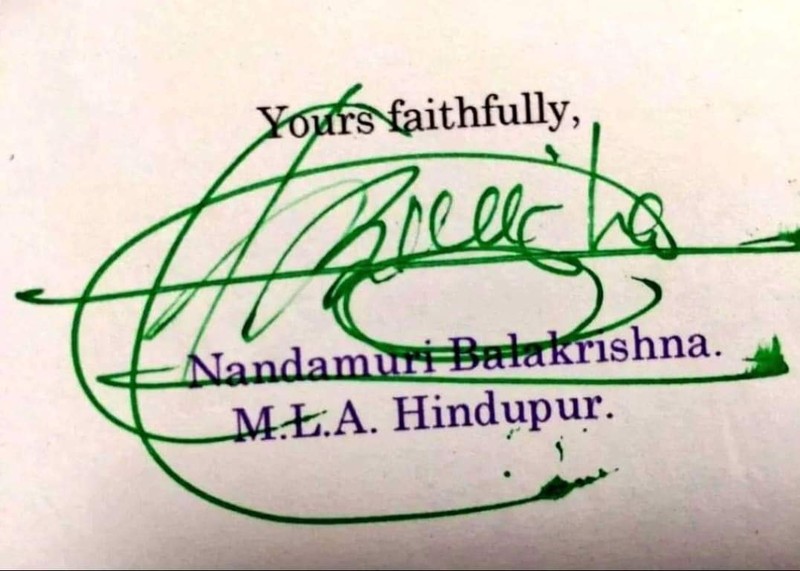 Yours faithfully,
Nandamuri Balakrishna.
M.L.A. Hindupur.